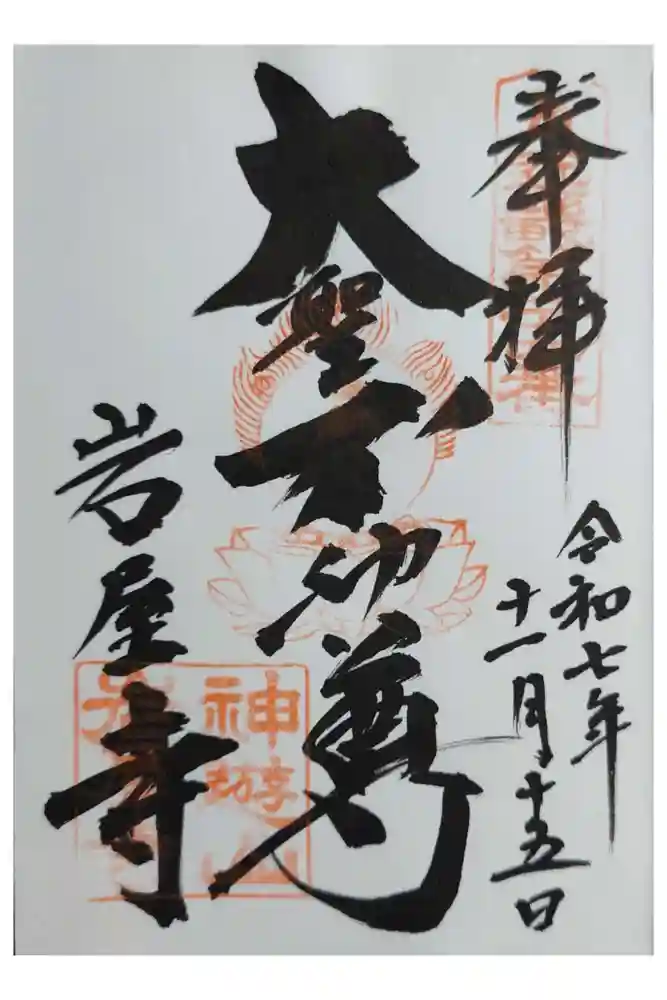 奉拝
令和七年
十一月十五日
大聖不動尊
岩屋寺
神遊山